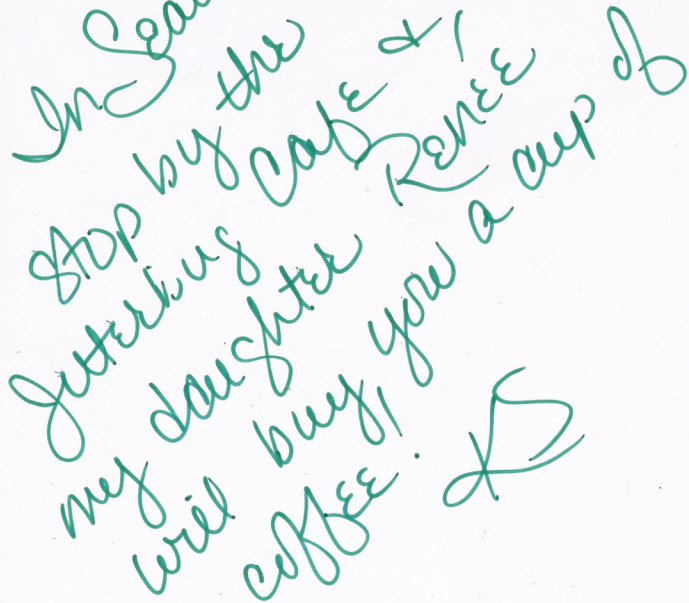 In Sea
stop by the
Jitterbug Cafe &
my daughter Renee
will buy you a cup of
coffee. KS